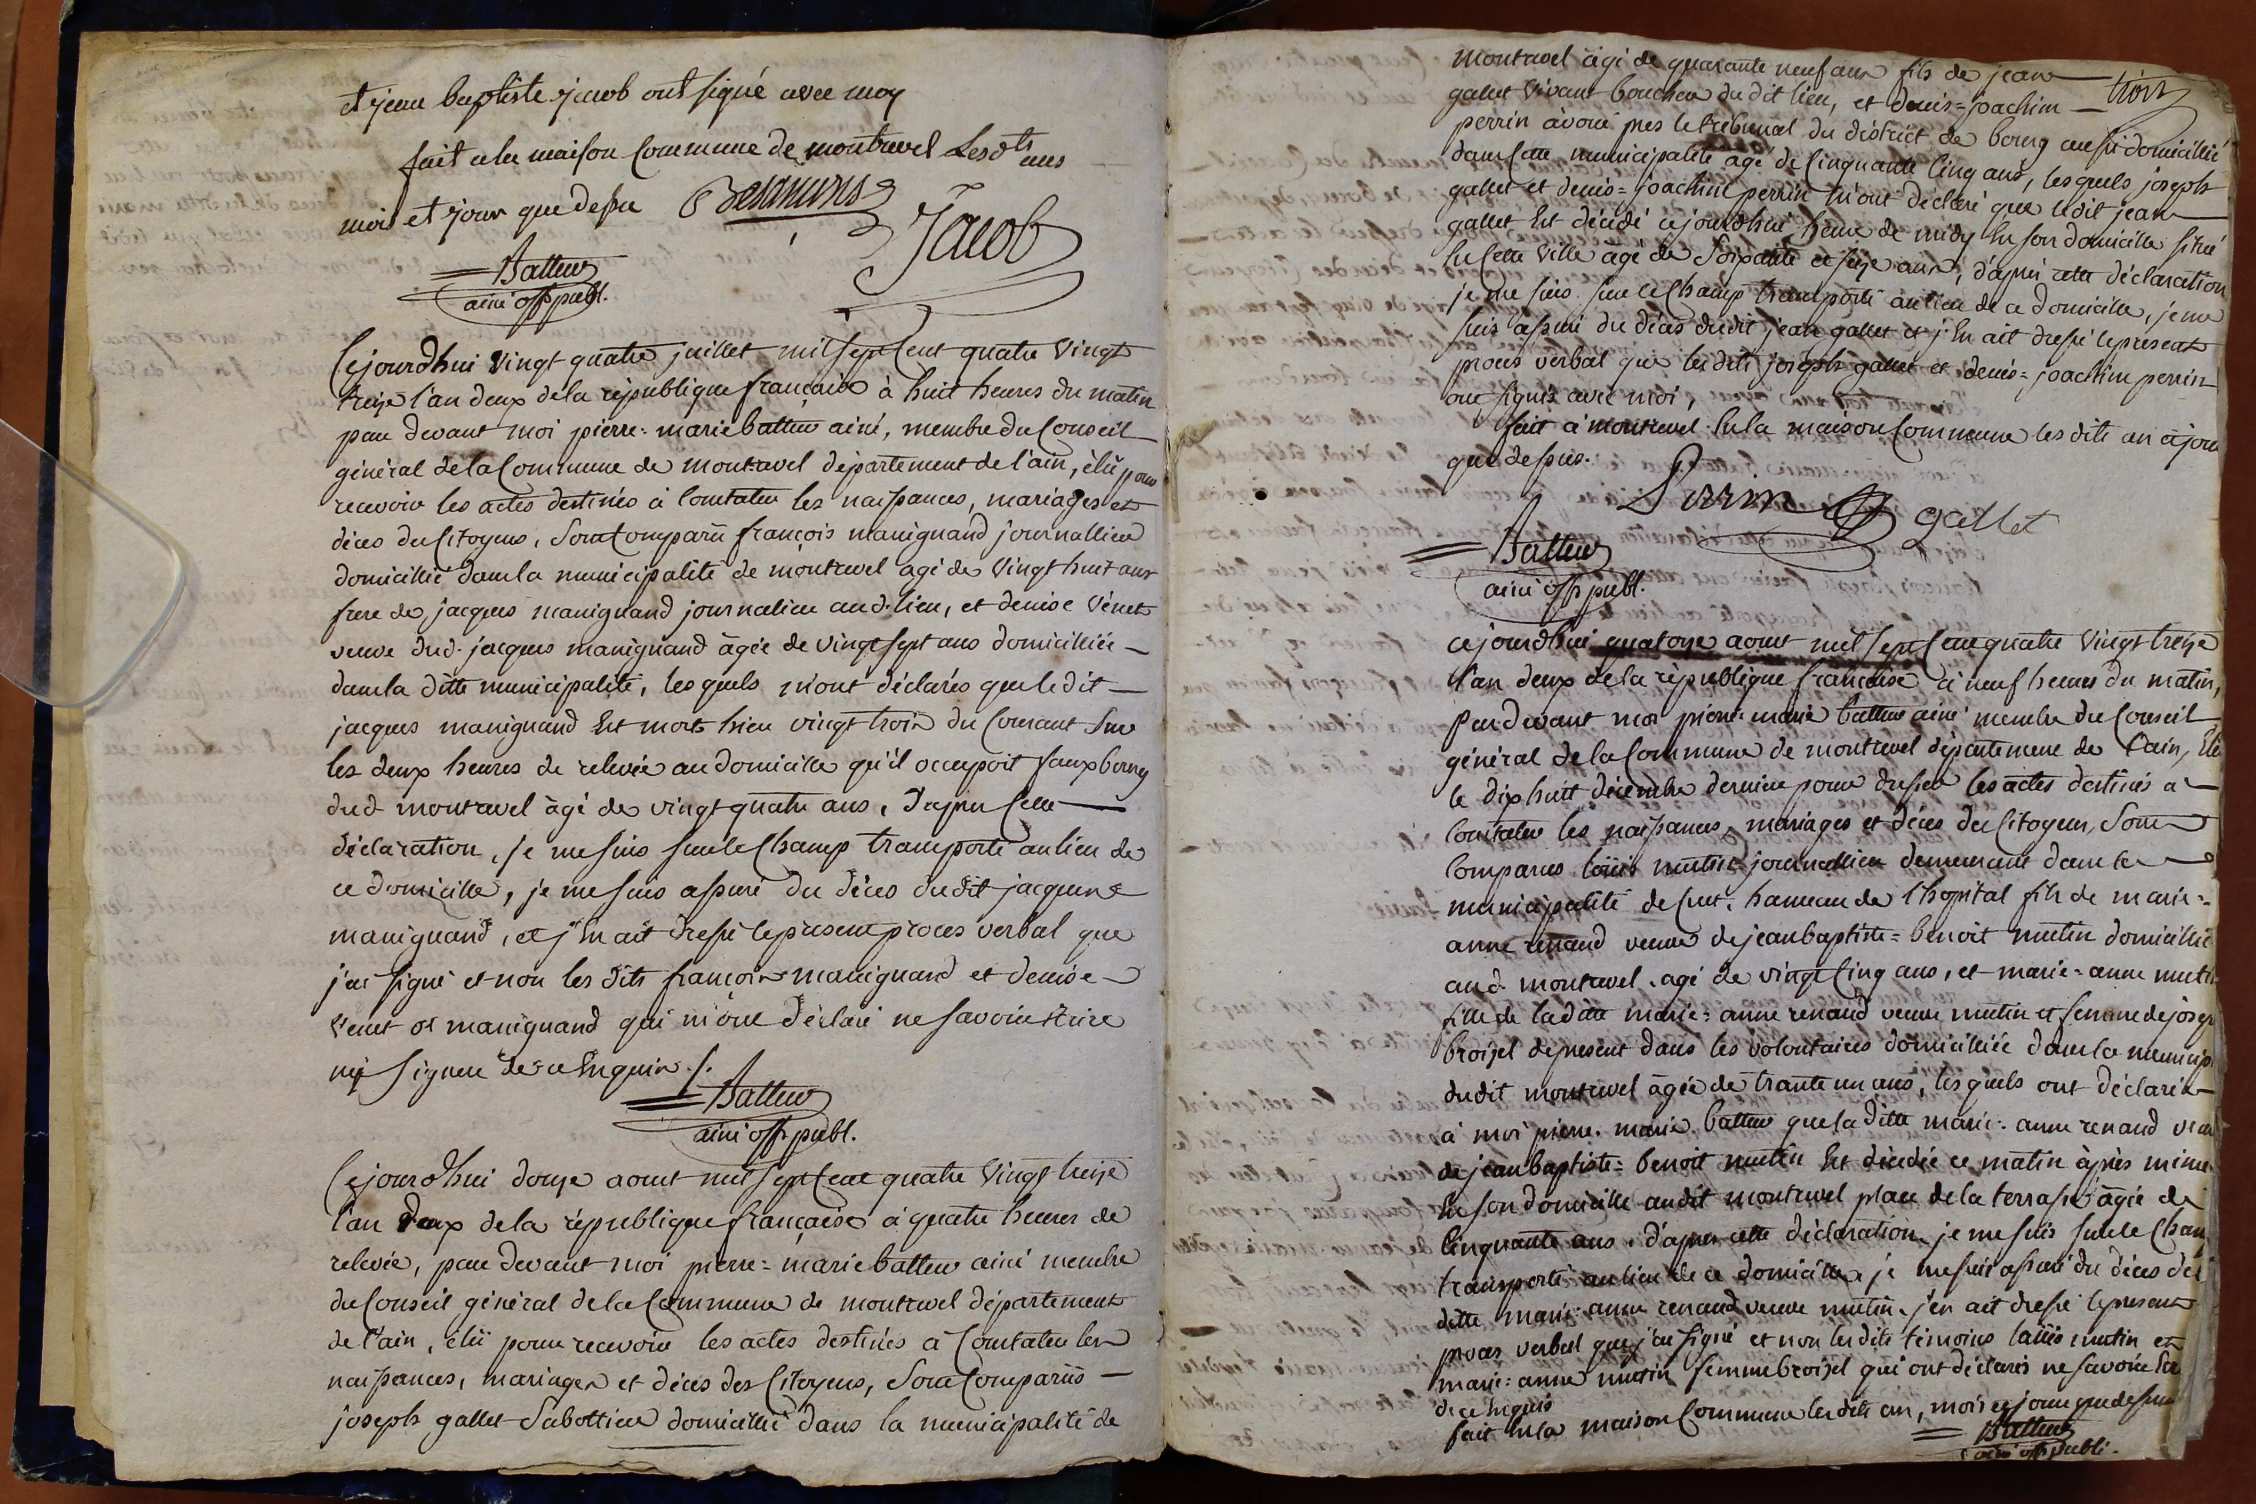 et jean baptiste jacob ont signé avec moy
fait a la maison Commune de montrevel Lesdts ans
mois et jour que dessu
Jacob
Batteur
ainé off. publ.
Cejourdhui vingt quatre juillet mil sept Cent quatre vingt
treize l'an deux de la république française à huit heures du matin
par devant moi pierre-marie batteur ainé, membre du Conseil
général de la Commune de montrevel département de l'ain, élû pour
recevoir les actes destinés à Constater les naissances, mariages et
décès des Citoyens, Sont Comparû françois manignand journallier
domicillié dans la municipalité de montrevel agé de vingt huit ans
frere de jacques manignand journalier aud. lieu, et denise vénet
veuve dud. jacques manignand âgée de vingt sept ans domicilliée
dans la ditte municipalité, les quels m'ont déclarés que le dit
jacques manignand Est mort hier vingt trois du Courant Sur
les deux heures de relevée au domicille qu'il occupoit fauxbourg
dud. montrevel âgé de vingt quatre ans, d'après Cette
déclaration, je me suis sur le Champ transporté au lieu de
ce domicille, je me suis assuré du décès du dit jacques
manignand, et j'En ait dressé le present procès verbal que
j'ai signé et non les dits françois manignand et denise
venet ve manignand qui m'ont déclaré ne savoir Ecrire
ny signer de ce Enquis ./.
Batteur
ainé off. publ.
Cejourdhui douze aout mil sept Cent quatre vingt treize
l'an deux de la république française à quatre heures de
relevée, par devant moi pierre-marie batteur ainé membre
du Conseil général de la Commune de montrevel département
de l'ain, élû pour recevoir les actes destinés à Constater les
naissances, mariages et décès des Citoyens, Sont Comparûs
joseph gallet Sabottier domicillié dans la municipalité de
trois
montrevel âgé de quarante neuf ans fils de jean
gallet vivant boucher du dit lieu, et denis-joachim
perrin avoué près le tribunal du district de bourg aussi domicillié
dans Cette municipalité âgé de Cinquante Cinq ans, les quels joseph
gallet et denis-joachim perrin m'ont déclaré que ledit jean
gallet Est décédé cejourdhui heure de midy En son domicille situé
En Cette ville âgé de Soixante et seize ans, d'après cette déclaration
je me suis sur le Champ transporté au lieu de ce domicille, je me
suis assuré du décès du dit jean gallet et j'En ait dressé le present
procès verbal que les dits joseph gallet et denis-joachim perrin
ont signés avec moi,
fait à montrevel En la maison Commune les dits an et jour
que dessus.
Perrin gallet
Batteur
ainé off. publ.
cejourdhui quatorze aout mil sept Cent quatre vingt treize
l'an deux de la république française à neuf heures du matin,
par devant moi pierre-marie batteur ainé membre du Conseil
général de la Commune de montrevel département de l'ain, Elu
le dix huit décembre dernier pour dresser les actes destinés a
Constater les naissances, mariages et décès des Citoyens, Sont
Comparus loüis mutin journallier demeurant dans la
municipalité de Cuet, hameau de l'hopital fils de marie-
anne renand veuve de jean baptiste-benoit mutin domicillié
aud. montrevel, agé de vingt Cinq ans, et marie-anne mutin
fille de la ditte marie-anne renand veuve mutin et femme de joseph
broisel de present dans les volontaires domicilliée dans la municip.
du dit montrevel âgée de trante un ans, les quels ont déclarés
à moi pierre-marie batteur que la ditte marie-anne renand veuve
de jean baptiste-benoit mutin Est décédée ce matin après minuit
En son domicille audit montrevel place de la terrasse âgée de
Cinquante ans, d'après cette déclaration je me suis sur le Champ
transporté au lieu de ce domicille, je me suis assuré du décès de la
ditte marie-anne renand veuve mutin, j'en ait dressé le present
procès verbal que j'ai signé et non les dits témoins loüis mutin et
marie-anne mutin femme broisel qui ont déclarés ne savoir
de ce Enquis
fait En la maison Commune les dits an, mois et jour que dessus
Batteur
ainé off. publi.